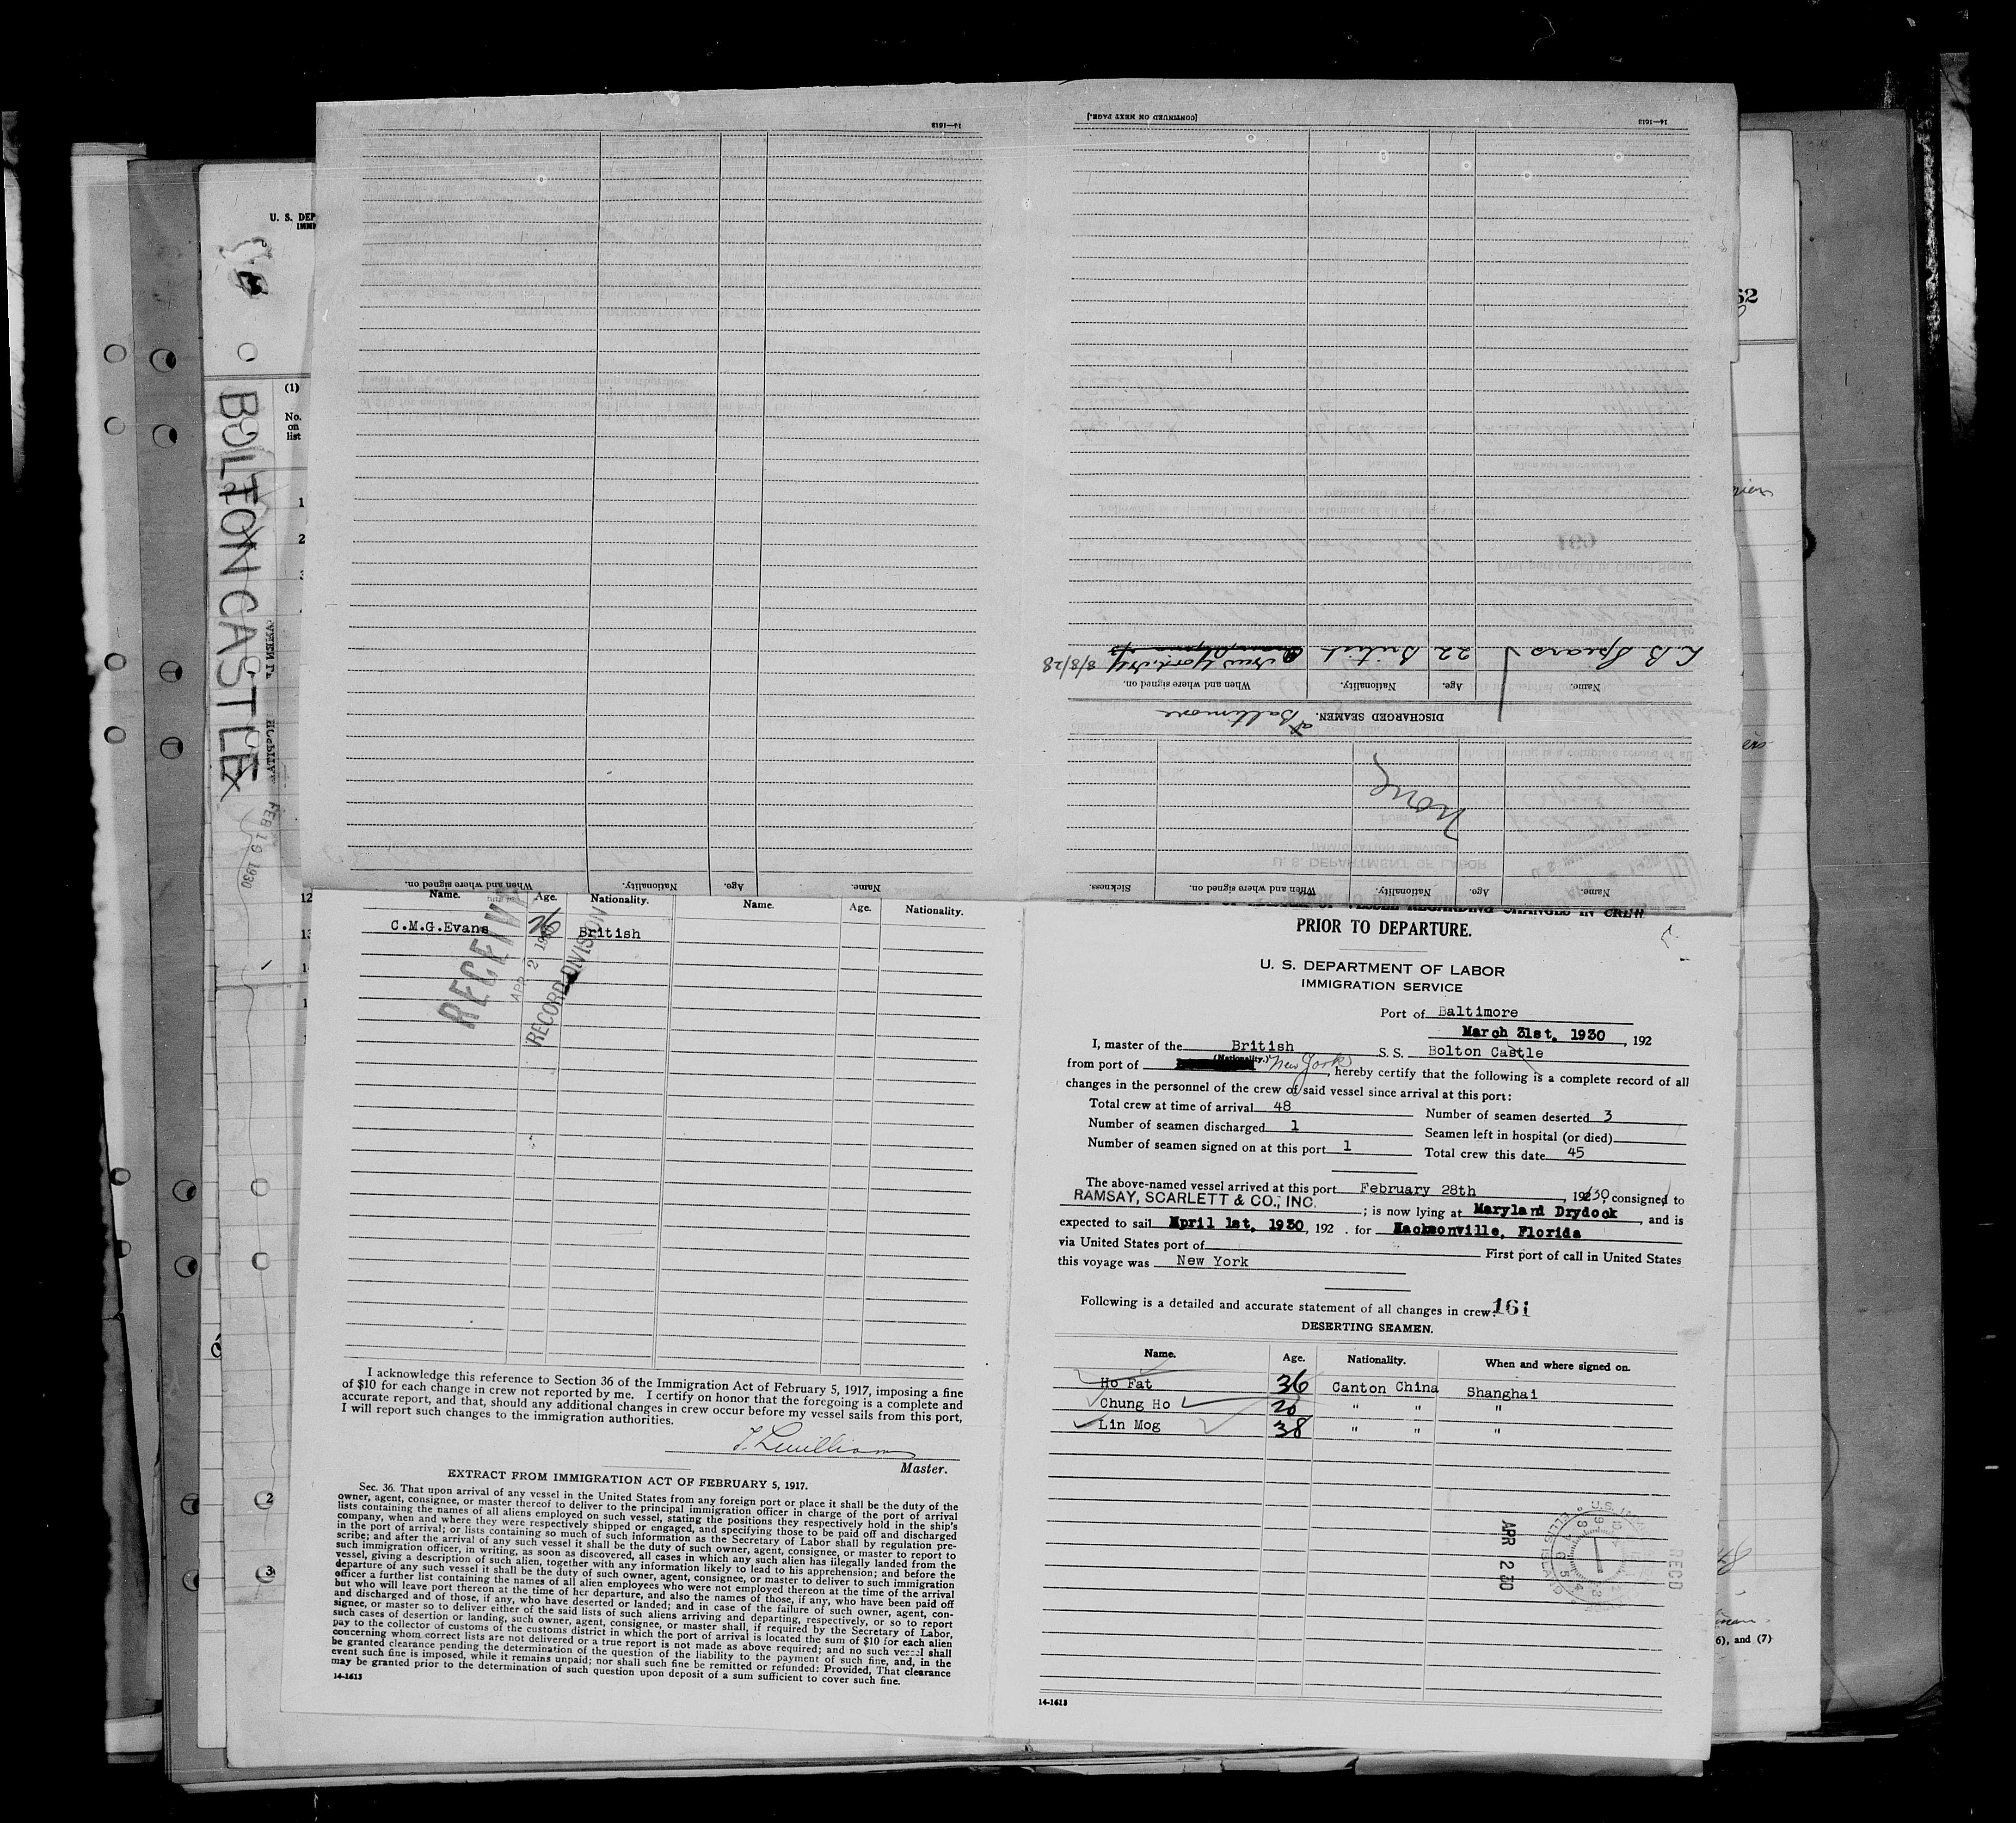 14—1613
[CONTINUED ON NEXT PAGE.]
14—1613
U. S. DEP
IMMI
62
(1)
No.
on
list
1
2
3
BOLTON CASTLE
FEB 19 1930
12
13
K B Spears 22 British New York City 8/8/28
Name. Age. Nationality. When and where signed on.
DISCHARGED SEAMEN.
at Baltimore
None
Name. Age. Nationality. When and where signed on. Sickness.
Name. Age. Nationality. When and where signed on.
Name. Age. Nationality. Name. Age. Nationality.
C.M.G.Evans 26 British
RECEIVED
APR 2 1930
RECORD DIVISION
I acknowledge this reference to Section 36 of the Immigration Act of February 5, 1917, imposing a fine
of $10 for each change in crew not reported by me. I certify on honor that the foregoing is a complete and
accurate report, and that, should any additional changes in crew occur before my vessel sails from this port,
I will report such changes to the immigration authorities.
Master.
EXTRACT FROM IMMIGRATION ACT OF FEBRUARY 5, 1917.
Sec. 36. That upon arrival of any vessel in the United States from any foreign port or place it shall be the duty of the
owner, agent, consignee, or master thereof to deliver to the principal immigration officer in charge of the port of arrival
lists containing the names of all aliens employed on such vessel, stating the positions they respectively hold in the ship's
company, when and where they were respectively shipped or engaged, and specifying those to be paid off and discharged
in the port of arrival; or lists containing so much of such information as the Secretary of Labor shall by regulation pre-
scribe; and after the arrival of any such vessel it shall be the duty of such owner, agent, consignee, or master to report to
such immigration officer, in writing, as soon as discovered, all cases in which any such alien has illegally landed from the
vessel, giving a description of such alien, together with any information likely to lead to his apprehension; and before the
departure of any such vessel it shall be the duty of such owner, agent, consignee, or master to deliver to such immigration
officer a further list containing the names of all alien employees who were not employed thereon at the time of the arrival
but who will leave port thereon at the time of her departure, and also the names of those, if any, who have been paid off
and discharged and of those, if any, who have deserted or landed; and in case of the failure of such owner, agent, con-
signee, or master so to deliver either of the said lists of such aliens arriving and departing, respectively, or so to report
such cases of desertion or landing, such owner, agent, consignee, or master shall, if required by the Secretary of Labor,
pay to the collector of customs of the customs district in which the port of arrival is located the sum of $10 for each alien
concerning whom correct lists are not delivered or a true report is not made as above required; and no such vessel shall
be granted clearance pending the determination of the question of the liability to the payment of such fine, and, in the
event such fine is imposed, while it remains unpaid; nor shall such fine be remitted or refunded: Provided, That clearance
may be granted prior to the determination of such question upon deposit of a sum sufficient to cover such fine.
14-1613
OF VESSEL REGARDING CHANGES IN CREW
PRIOR TO DEPARTURE.
U. S. DEPARTMENT OF LABOR
IMMIGRATION SERVICE
Port of Baltimore
March 31st, 1930, 192
I, master of the British S. S. Bolton Castle
(Nationality.)
from port of New York, hereby certify that the following is a complete record of all
changes in the personnel of the crew of said vessel since arrival at this port:
Total crew at time of arrival 48 Number of seamen deserted 3
Number of seamen discharged 1 Seamen left in hospital (or died)
Number of seamen signed on at this port 1 Total crew this date 45
The above-named vessel arrived at this port February 28th, 1930 consigned to
RAMSAY, SCARLETT & CO., INC. ; is now lying at Maryland Drydock, and is
expected to sail April 1st, 1930, 192 . for Jacksonville, Florida
via United States port of First port of call in United States
this voyage was New York
Following is a detailed and accurate statement of all changes in crew: 161
DESERTING SEAMEN.
Name. Age. Nationality. When and where signed on.
Ho Fat 36 Canton China Shanghai
Chung Ho 20 " " "
Lin Mog 38 " " "
APR 2 30
RECD
14-1613
6), and (7)